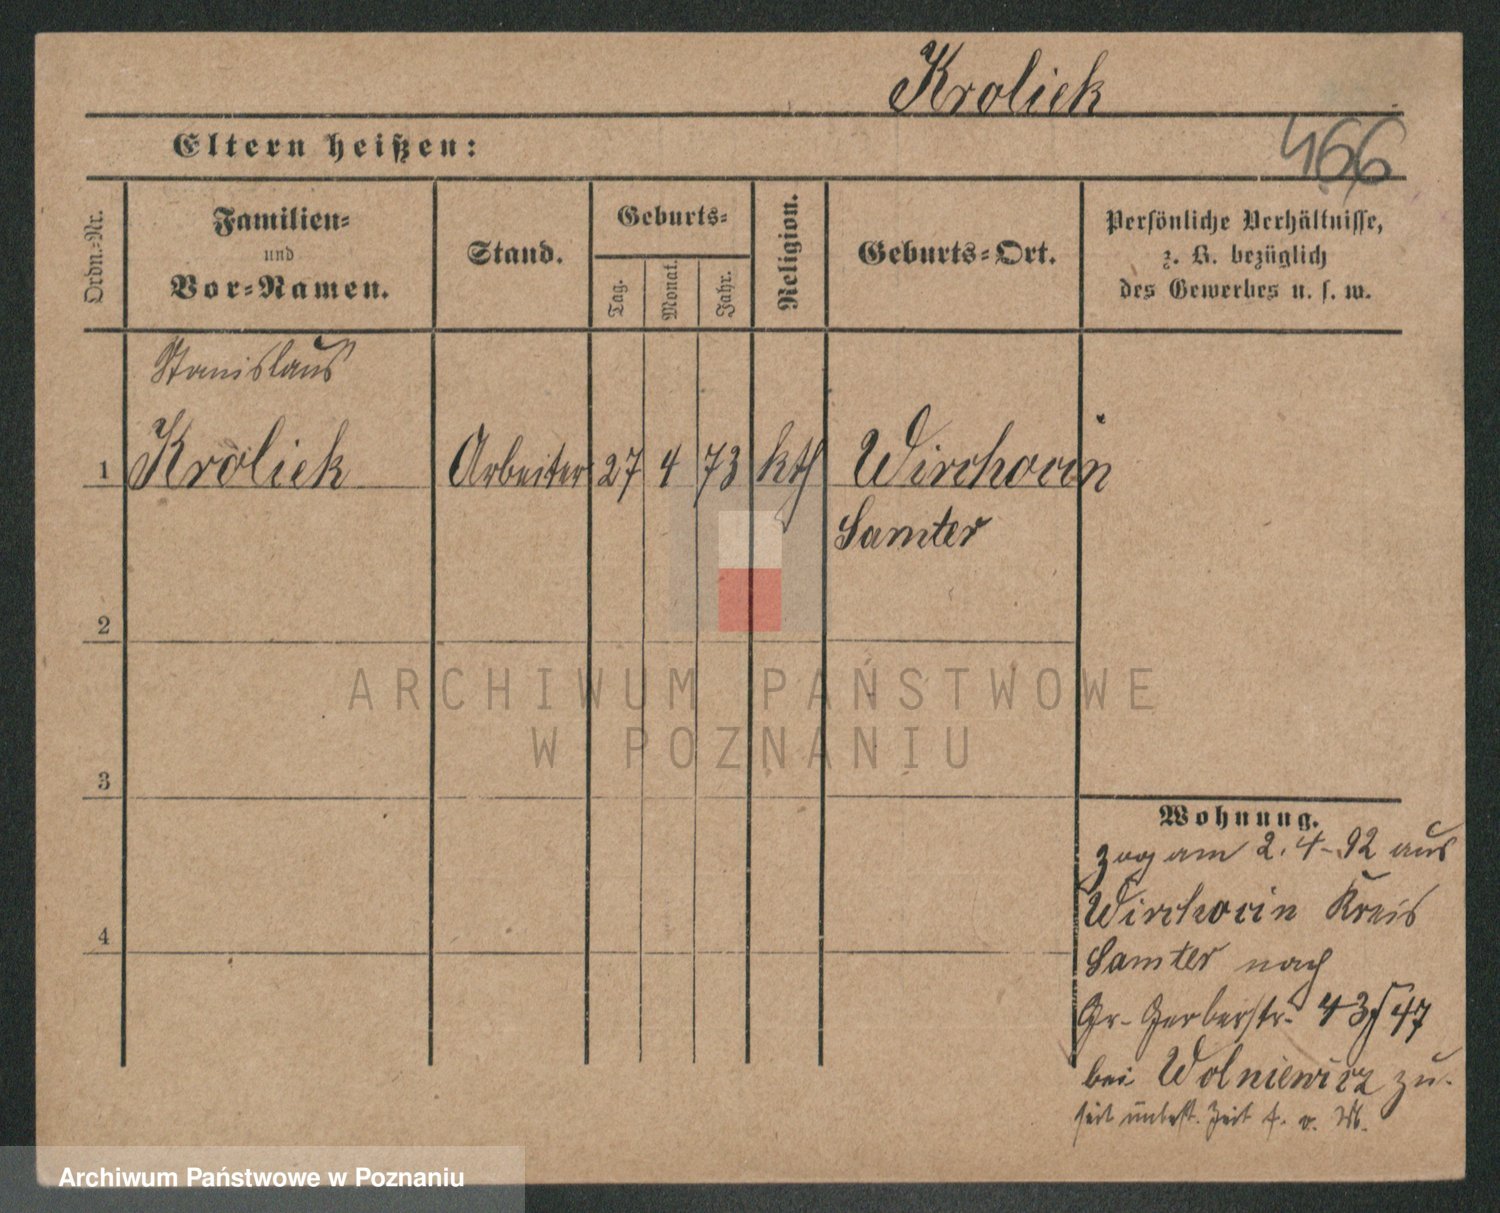 Kroliek
466
Eltern heißen:
Ordn.-Nr.
Familien-
und
Vor-Namen.
Stand.
Geburts-
Tag.
Monat.
Jahr.
Religion.
Geburts-Ort.
Persönliche Verhältnisse,
z. B. bezüglich
des Gewerbes u. s. w.
Stanislaus
1 Kroliek Arbeiter 27 4 73 kth Wirchocin
Samter
2
ARCHIWUM PAŃSTWOWE
W POZNANIU
3
Wohnung.
zog am 2. 4. 92 aus
Wirchocin Kreis
4
Samter nach
Gr. Gerberstr. 43/47
bei Wolniewicz zu.
seit unbest. Zeit
Archiwum Państwowe w Poznaniu